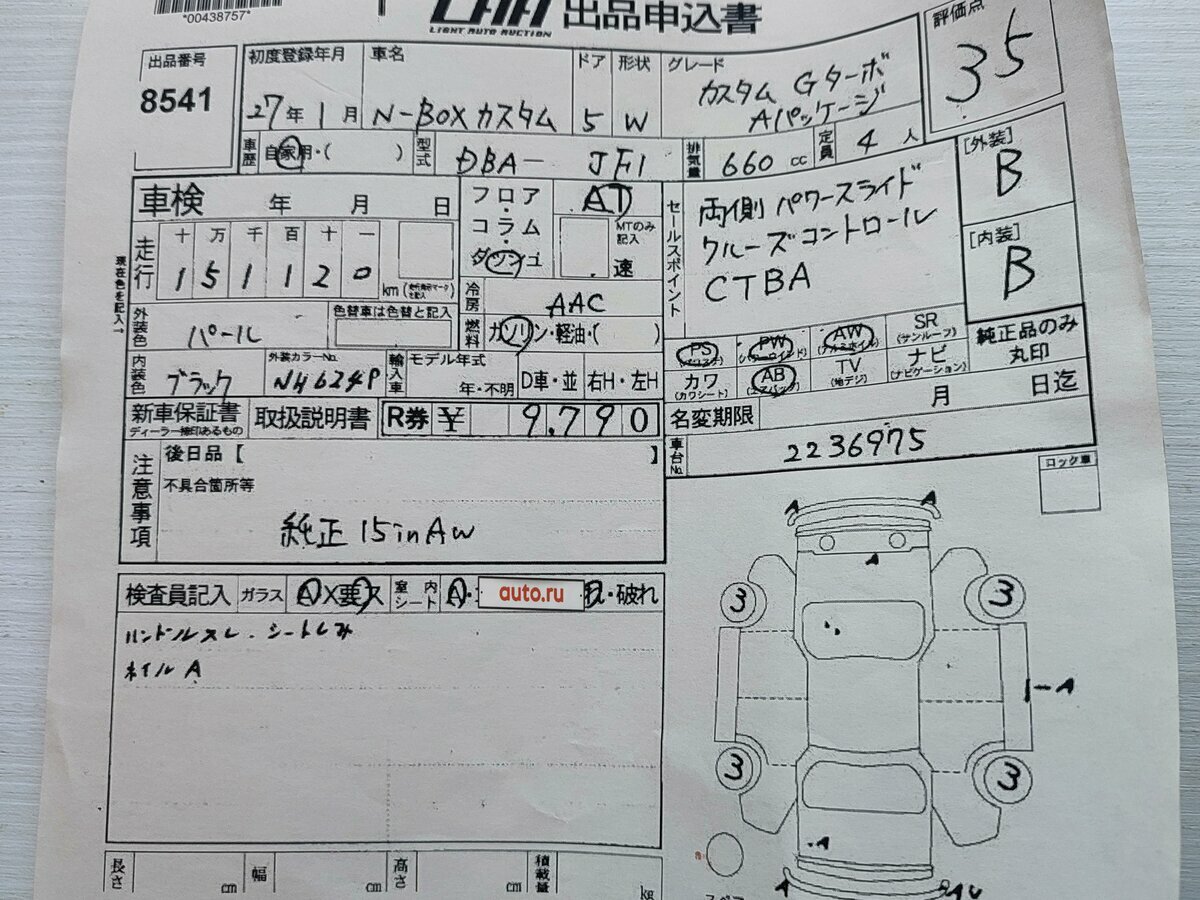 *00438757*
LAA 出品申込書
LIGHT AUTO AUCTION
出品番号
8541
初度登録年月 車名 ドア 形状 グレード
27年 1月 N-BOX カスタム 5 W カスタム Gターボ
Aパッケージ
評価点
35
車歴 自家用・( ) 型式 DBA- JF1 排気量 660 cc 定員 4 人
[外装]
B
[内装]
B
車検 年 月 日
フロア・コラム・ダッシュ AT
MTのみ記入
速
現在色を記入→
走行 十 万 千 百 十 一
1 5 1 1 2 0 km
冷房 AAC
燃料 ガソリン・軽油・( )
セールスポイント
両側パワースライド
クルーズコントロール
CTBA
外装色 パール
色替車は色替と記入
内装色 ブラック
外装カラーNo.
NH624P
輸入車 モデル年式
年・不明 D車・並 右H・左H
PS PW AW SR
(サンルーフ)
カワ AB TV ナビ
(カワシート) (エアバッグ) (地デジ) (ナビゲーション)
純正品のみ
丸印
新車保証書
ディーラー捺印あるもの
取扱説明書 R券 ¥ 9,790
名変期限 月 日迄
車台No. 2236975
注意事項
後日品【 】
不具合箇所等
純正 15inAW
ロック車
検査員記入 ガラス A X要ス 室内シート A・
auto.ru
・破れ
ハンドルスレ・シートシミ
ホイル A
A A
A
3 3
1-A
3 3
.A
A
長さ cm 幅 cm 高さ cm 積載量 kg